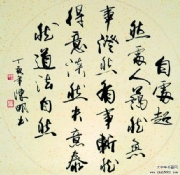 自處超
然處人藹然無
事澄然有事斬然
得意淡然失意泰
然道法自然
丁亥年